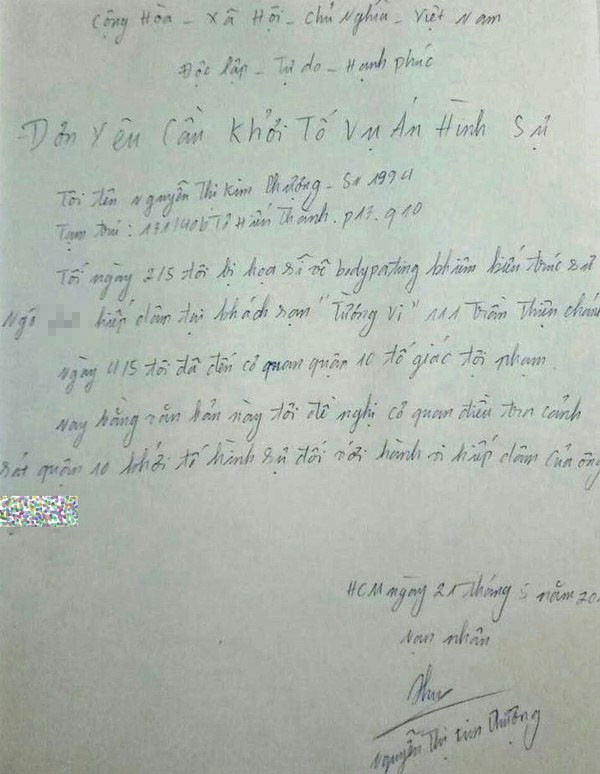 Cộng Hòa - Xã Hội - Chủ Nghĩa - Việt Nam
Độc lập - Tự do - Hạnh phúc
-Đơn Yêu Cầu Khởi Tố Vụ Án Hình Sự
Tôi tên Nguyễn Thị Kim Phượng - Sn 1994
Tạm trú: 131/40b Tô Hiến Thành. p13. q10
Tối ngày 2/5 tôi bị họa sĩ vẽ bodypating khiêm kiến trúc sư
Ngô hiếp dâm tại khách sạn "Tường Vi" 111 trần thiện chánh
ngày 4/5 tôi đã đến cơ quan quận 10 tố giác tội phạm.
nay bằng văn bản này tôi đề nghị cơ quan điều tra cảnh
sát quận 10 khởi tố hình sự đối với hành vi hiếp dâm của ông
HCM ngày 21 tháng 5 năm 20
nạn nhân
Nguyễn Thị Kim Phượng